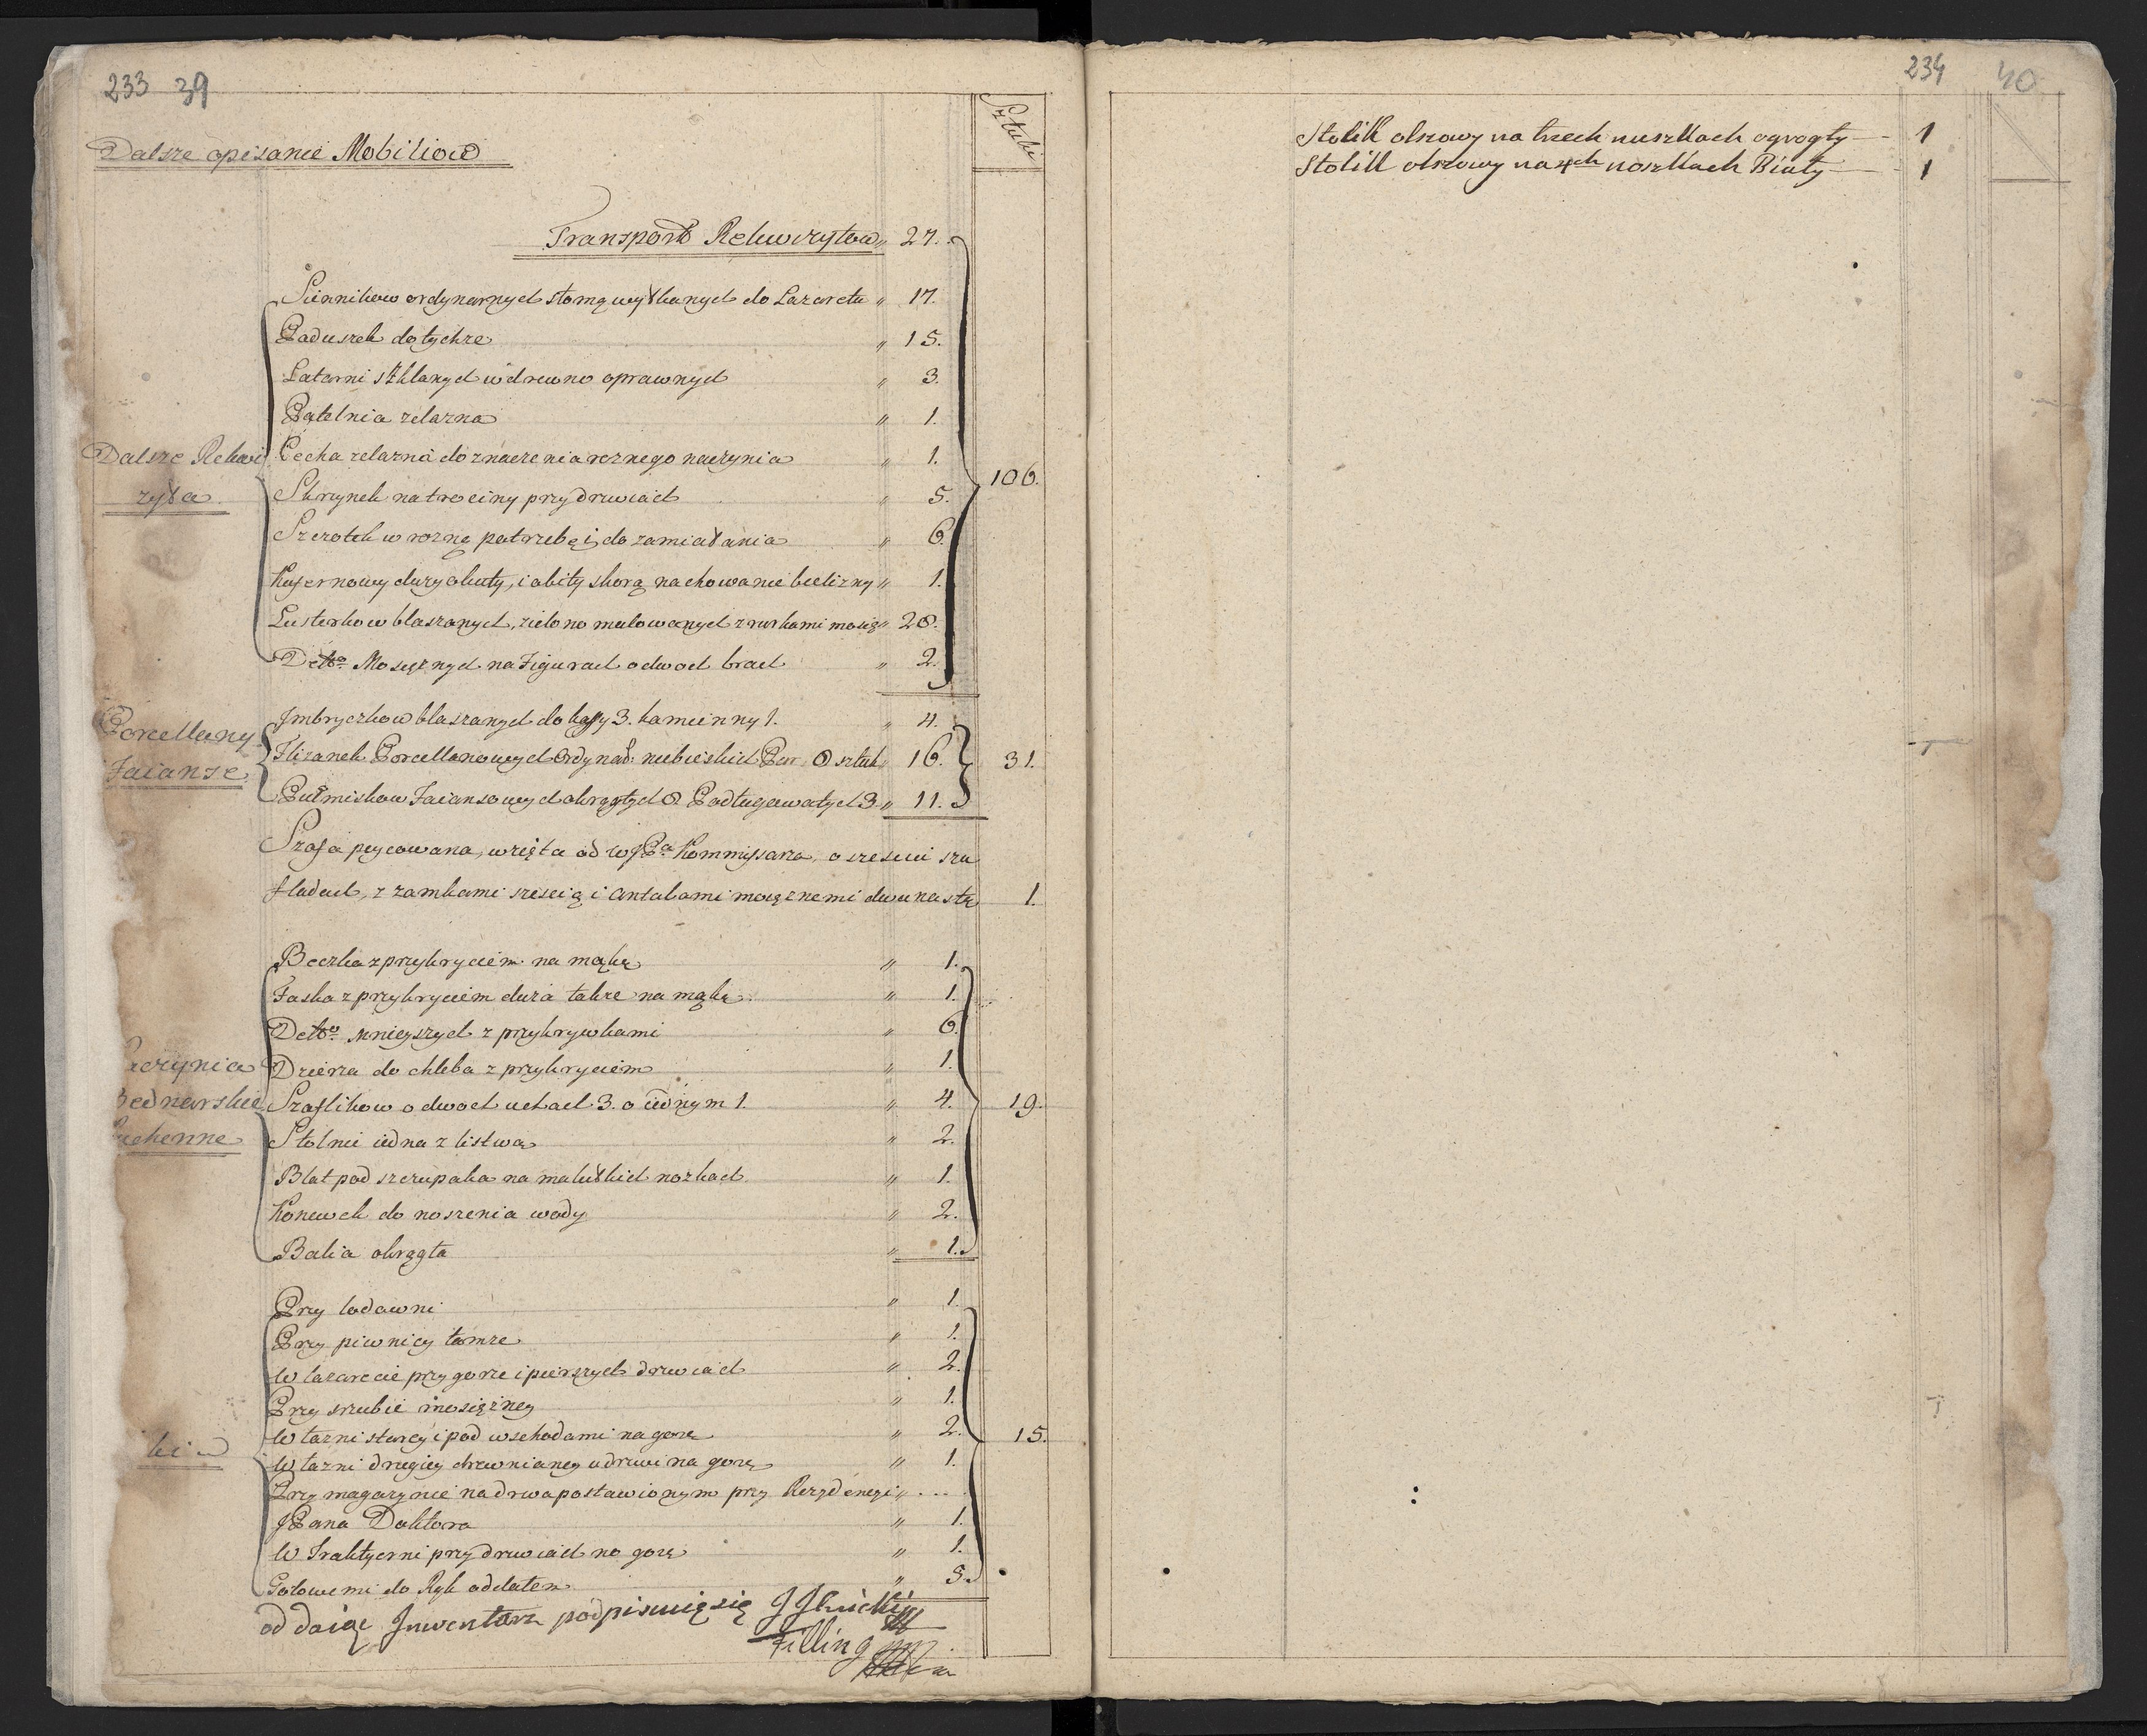 233 39
Sztuki
Dalsze opisanie Mobiliow
Transport Rekwizytow " 27.
Siennikow ordynarnych słomą wytkanych do Lazaretu " 17.
Paduszek do tychże " 15.
Latarni szklanych w drewno oprawnych " 3.
Patelnia zelazna " 1.
Dalsze Rekwi
zyta
Cecha zelazna do znaczenia roznego naczynia " 1.
106.
Skrzynek na trociny przy drzwiach " 5.
Szczotek w rozną potrzebę i do zamiatania " 6.
Kufer nowy duzy okuty, i obity skorą na chowanie bielizny " 1.
Lusterkow blaszanych, zielono malowanych z rurkami mosię " 28.
Detto Mosiężnych na Figurach o dwoch brach " 2.
Porcellany
Faianse
Imbryczkow blaszanych do kaffy 3. kamienny 1. " 4.
Fliżanek Porcellanowych Ordynar: niebieskich Par 8 sztuk 16.
31.
Pułmiskow Faiansowych okrągłych 8. Podługowatych 3 " 11.
Szafa peycowana, wzięta od WJPa Kommissarza, o sześciu szu
fladach, z zamkami sześcią i antabami mosiężnemi dwunastą 1.
Beczka z przykryciem na mąkę " 1.
Faska z przykryciem duża takze na mąkę " 1.
Detto mnieyszych z przykrywkami " 6.
czynia
Bednarskie
uchenne
Dzieża do chleba z przykryciem " 1.
Szaflikow o dwoch uchach 3. o iednym 1. " 4.
19.
Stolnic iedna z listwą " 2.
Blat pod szczupaka na malutkich nozkach " 1.
Konewek do noszenia wody " 2.
Balia okrągła " 1.
Przy lodowni " 1.
Przy piwnicy tamże " 1.
W lazarecie przy gorze i pierszych drzwiach " 2.
Przy szrubie mosiężney " 1.
W łazni starey i pod wschodami na gorę " 2.
15.
W łazni drugiey drewnianey u drzwi na gorę " 1.
Przy magazynie na drwa postawionym przy Rezydencyi " ...
JPana Doktora " 1.
W Traktyerni przy drzwiach na gorę " 1.
Gotowemi do Rąk oddałem " 5.
od daiąc Inwentarz podpisuię się
Filling
234 40
Stolik olszowy na trzech nuszkach ogrogły — 1
Stolik olszowy na 4ch noszkach Biały — 1